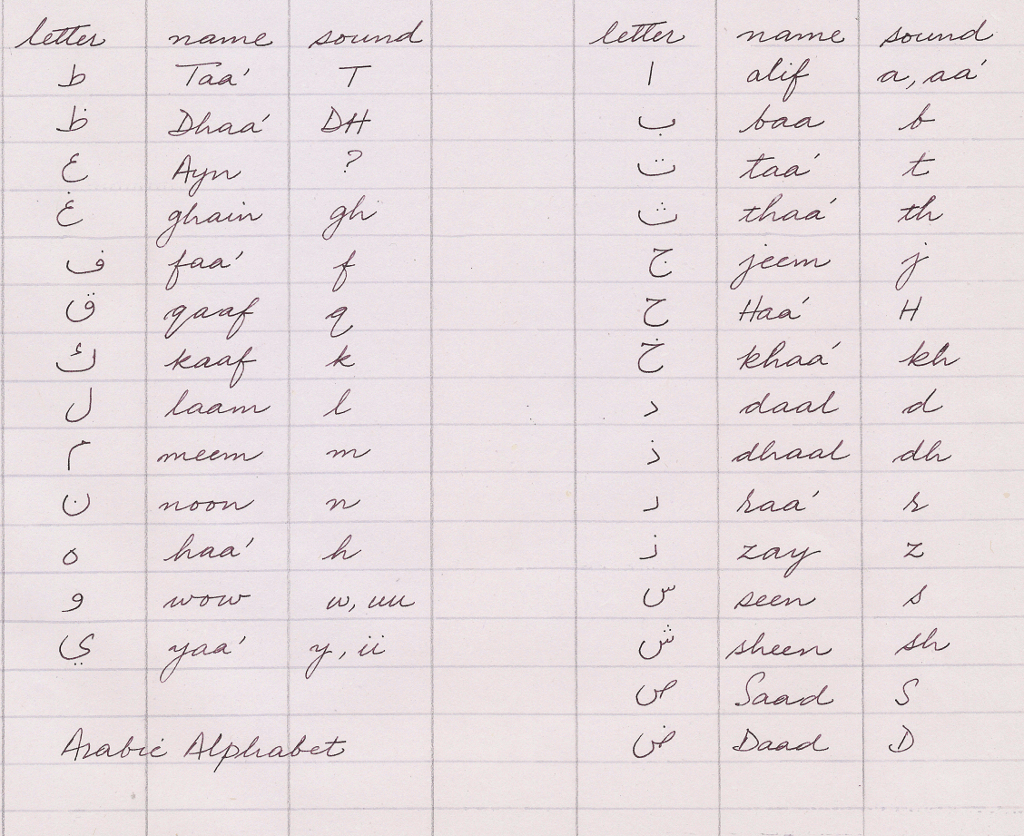 letter name sound letter name sound
ط Taa' T ا alif a, aa'
ظ Dhaa' DH ب baa b
ع Ayn ? ت taa' t
غ ghain gh ث thaa' th
ف faa' f ج jeem j
ق qaaf q ح Haa' H
ك kaaf k خ khaa' kh
ل laam l د daal d
م meem m ذ dhaal dh
ن noon n ر raa' r
ه haa' h ز zay z
و wow w, uu س seen s
ي yaa' y, ii ش sheen sh
ص Saad S
Arabic Alphabet ض Daad D